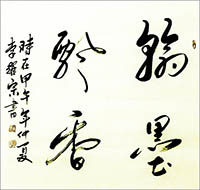 翰墨
飄香
時在甲午年仲夏
李宗書